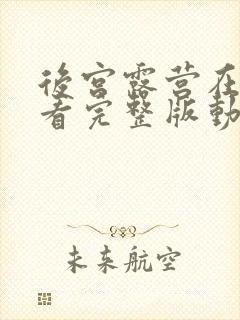 後宫露营在
看完整版動
未来航空